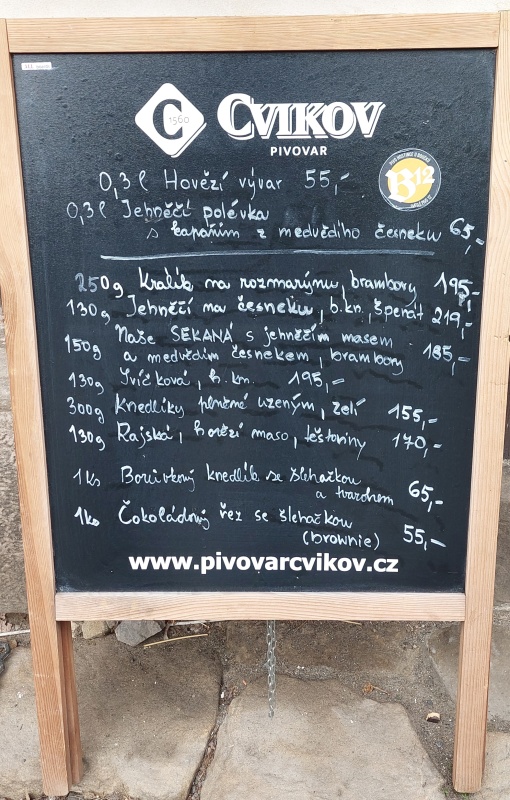 C 1560 CVIKOV
PIVOVAR
B12
0,3l Hovězí vývar 55,-
0,3l Jehněčí polévka
s kapáním z medvědího česneku 65,-
250g Králík na rozmarýnu, brambory 195,-
130g Jehněčí na česneku, b.kn, špenát 219,-
150g Naše SEKANÁ s jehněčím masem
a medvědím česnekem, brambory 185,-
130g Svíčková, h. kn. 195,-
300g Knedlíky plněné uzeným, zelí 155,-
130g Rajská, hovězí maso, těstoviny 170,-
1ks Borůvkový knedlík se šlehačkou
a tvarohem 65,-
1ks Čokoládový řez se šlehačkou
(brownie) 55,-
www.pivovarcvikov.cz